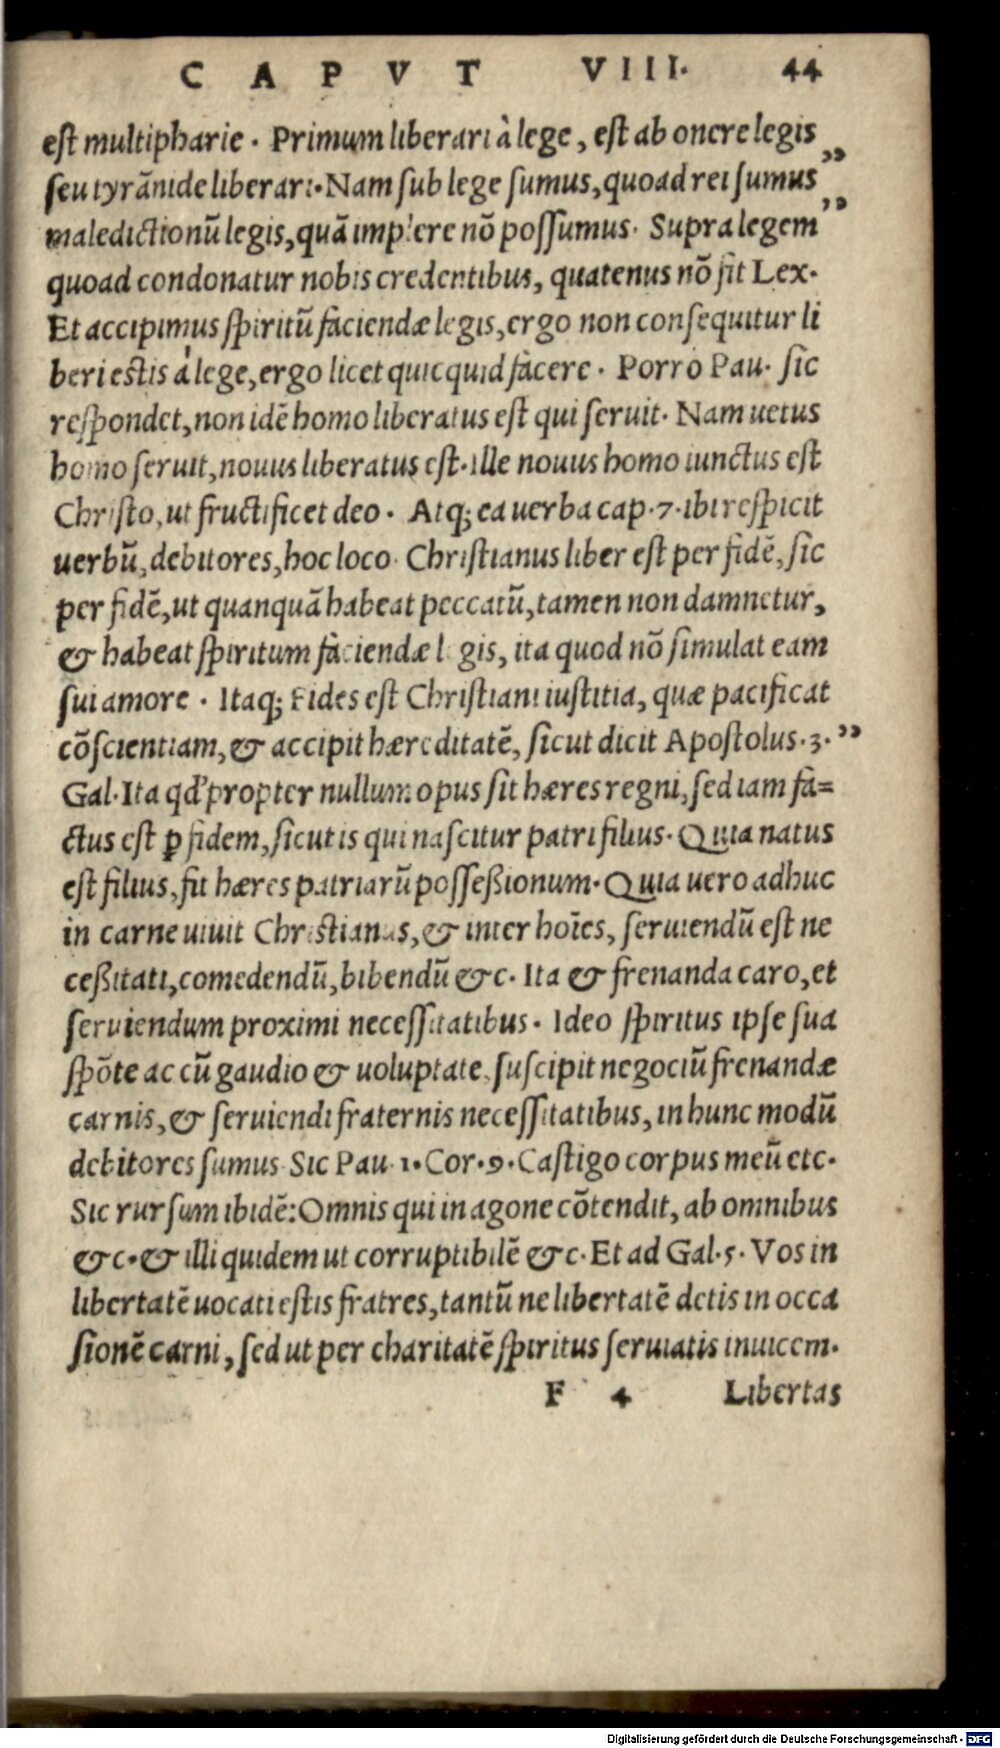 CAPVT VIII. 44
est multipharie. Primum liberari à lege, est ab onere legis
seu tyrãnide liberari. Nam sub lege sumus, quoad rei sumus ”
maledictionũ legis, quã implere nõ possumus. Supra legem ”
quoad condonatur nobis credentibus, quatenus nõ fit Lex.
Et accipimus spiritũ faciendæ legis, ergo non consequitur li
beri estis à lege, ergo licet quicquid facere. Porro Pau. sic
respondet, non idẽ homo liberatus est qui seruit. Nam uetus
homo seruit, nouus liberatus est. ille nouus homo iunctus est
Christo, ut fructificet deo. Atq; ea uerba cap. 7. ibi respicit
uerbũ, debitores, hoc loco. Christianus liber est per fidẽ, sic
per fidẽ, ut quanquã habeat peccatũ, tamen non damnetur,
& habeat spiritum faciendæ legis, ita quod nõ simulat eam
sui amore. Itaq; Fides est Christiani iustitia, quæ pacificat
cõscientiam, & accipit hæreditatẽ, sicut dicit Apostolus. 3. ”
Gal. Ita qđ propter nullum opus sit hæres regni, sed iam fa=
ctus est ꝑ fidem, sicut is qui nascitur patri filius. Quia natus
est filius, fit hæres patriarũ posseßionum. Quia uero adhuc
in carne uiuit Christianus, & inter hoĩes, seruiendũ est ne
ceßitati, comedendũ, bibendũ &c. Ita & frenanda caro, et
seruiendum proximi necessitatibus. Ideo spiritus ipse sua
spõte ac cũ gaudio & uoluptate, suscipit negociũ frenandæ
carnis, & seruiendi fraternis necessitatibus, in hunc modũ
debitores sumus. Sic Pau. 1. Cor. 9. Castigo corpus meũ etc.
Sic rursum ibidẽ: Omnis qui in agone cõtendit, ab omnibus
&c. & illi quidem ut corruptibilẽ &c. Et ad Gal. 5. Vos in
libertatẽ uocati estis fratres, tantũ ne libertatẽ detis in occa
sionẽ carni, sed ut per charitatẽ spiritus seruiatis inuicem.
F 4 Libertas
Digitalisierung gefördert durch die Deutsche Forschungsgemeinschaft - DFG